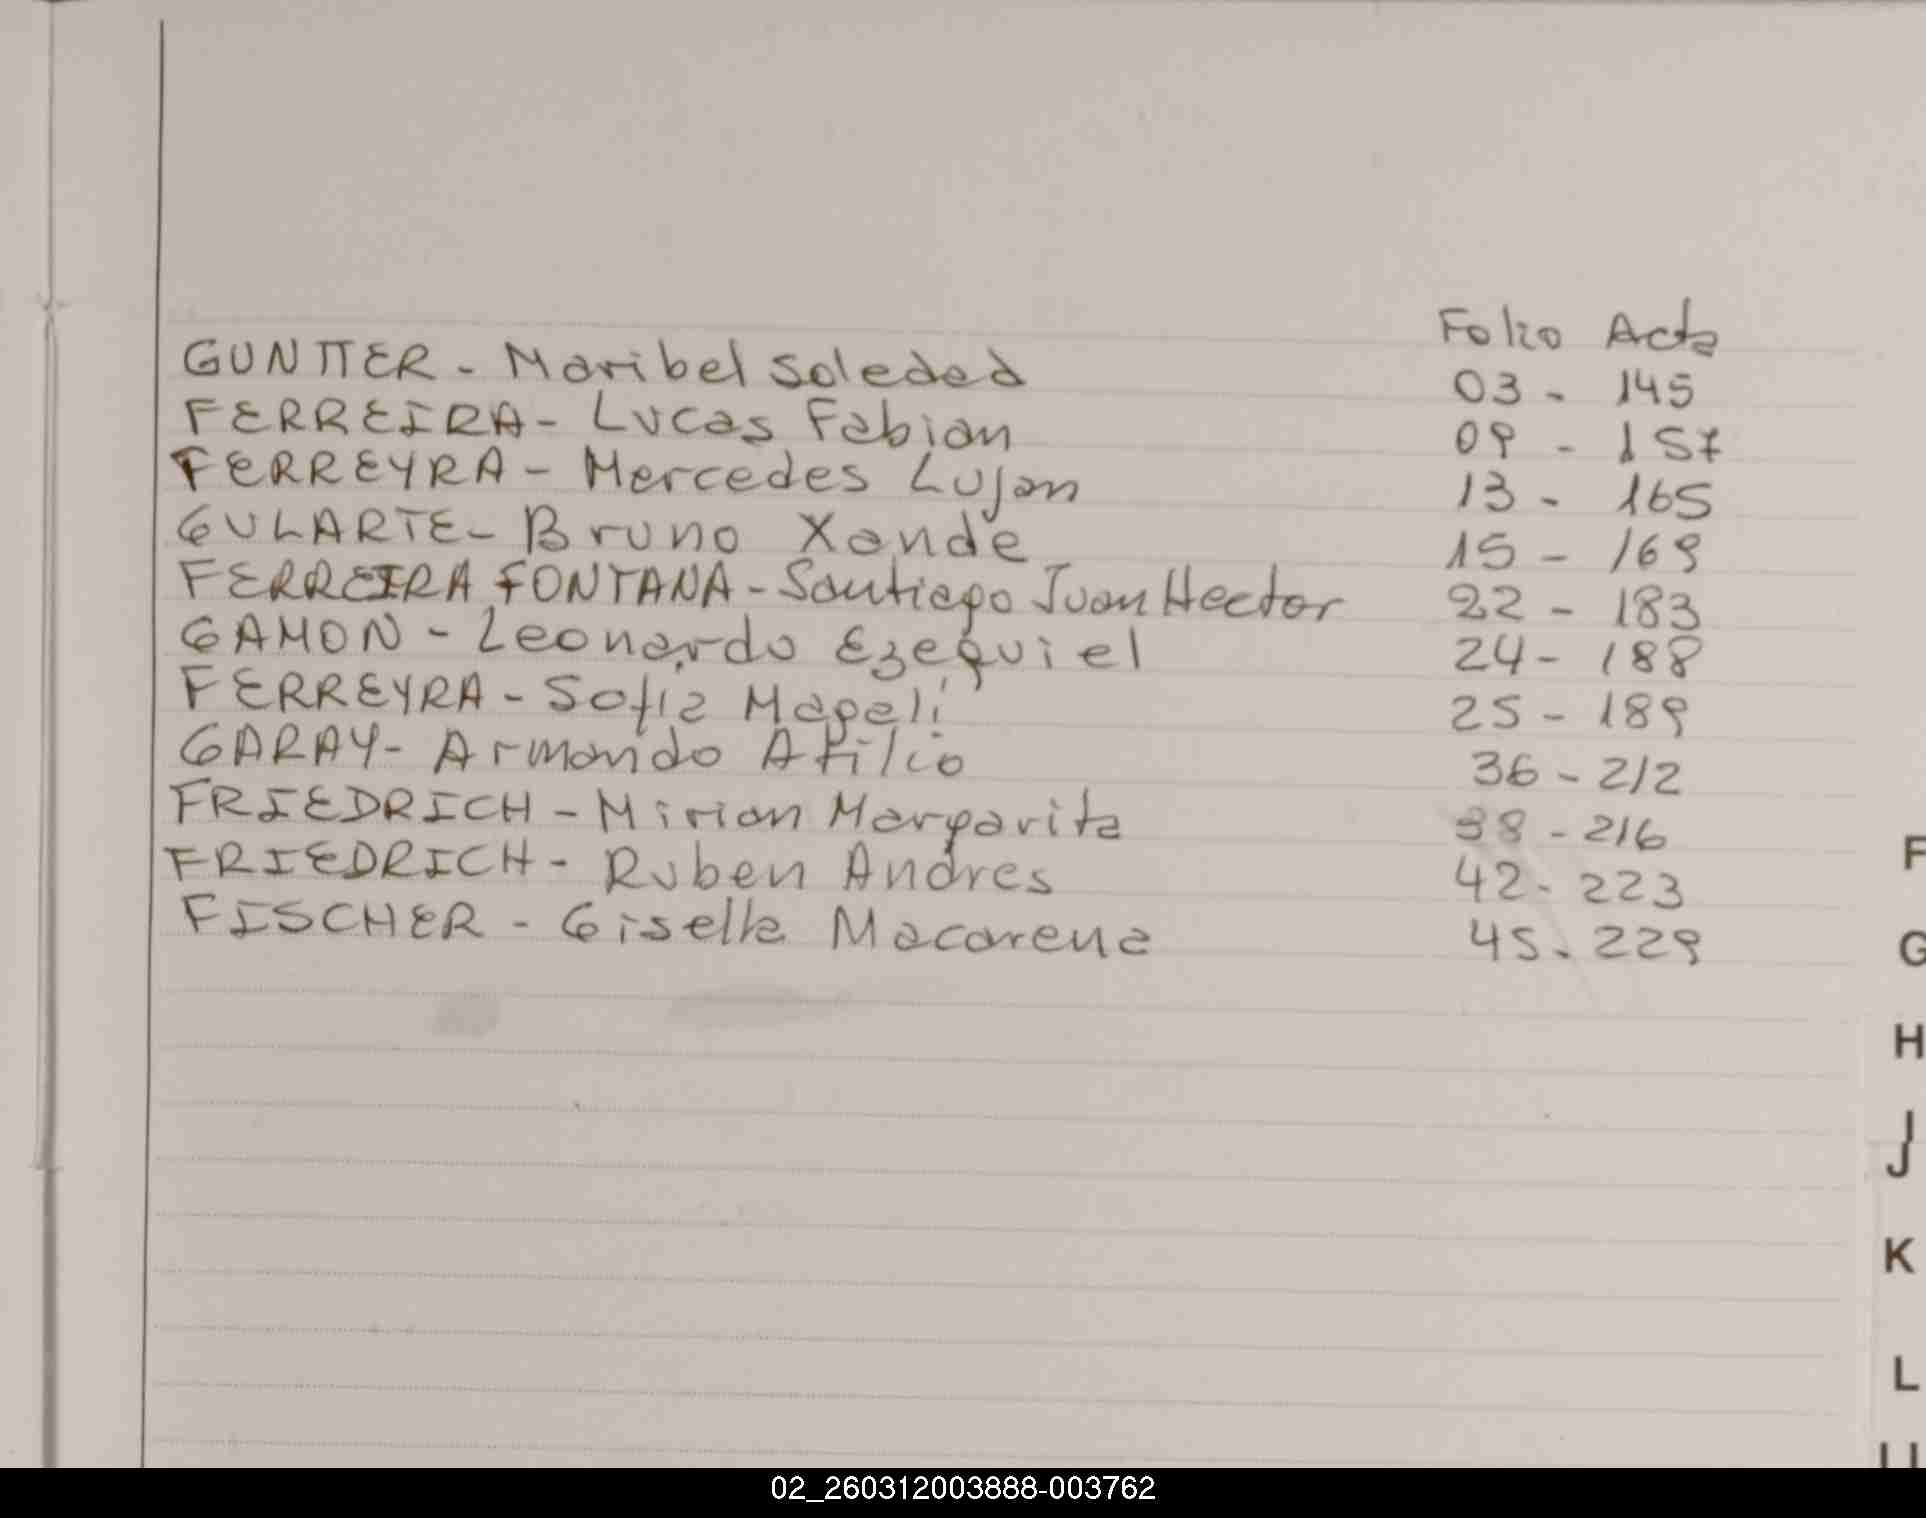 Folio Acta
GUNTTER - Maribel Soledad 03 - 145
FERREIRA - Lucas Fabian 09 - 157
FERREYRA - Mercedes Lujan 13 - 165
GULARTE - Bruno Xande 15 - 169
FERREIRA FONTANA - Santiago Juan Hector 22 - 183
GAMON - Leonardo Ezequiel 24 - 188
FERREYRA - Sofia Magali 25 - 189
GARAY - Armando Atilio 36 - 212
FRIEDRICH - Mirian Margarita 38 - 216
FRIEDRICH - Ruben Andres 42 - 223
FISCHER - Gisella Macarena 45 - 229
F
G
H
I
J
K
L
02_260312003888-003762